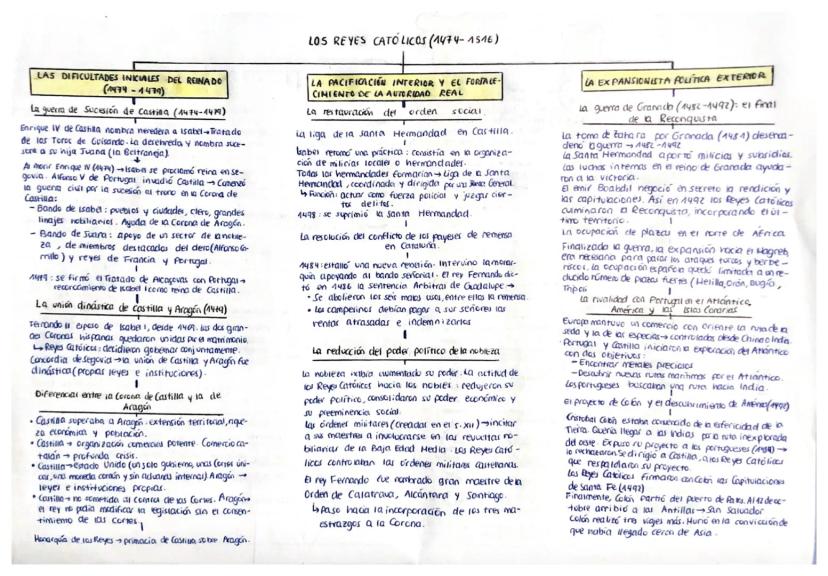 LOS REYES CATÓLICOS (1474-1516)
LAS DIFICULTADES INICIALES DEL REINADO
(1474-1479)
La guerra de Sucesión de Castilla (1474-1479)
Enrique IV de Castilla nombra heredera a Isabel → Tratado
de los Toros de Guisando. La deshereda y nombra suce-
sora a su hija Juana (la Beltraneja).
Al morir Enrique IV (1474) → Isabel se proclamó reina en Se-
govia. Alfonso V de Portugal invadió Castilla → Comenzó
la guerra civil por la sucesión al trono en la Corona de
Castilla:
- Bando de Isabel: pueblos y ciudades, clero, grandes
linajes nobiliarios. Ayuda de la Corona de Aragón.
- Bando de Juana: apoyo de un sector de la noble-
za, de miembros destacados del clero (Alfonso Ca-
rrillo) y reyes de Francia y Portugal.
1479: se firmó el Tratado de Alcaçovas con Portugal →
reconocimiento de Isabel I como reina de Castilla.
La unión dinástica de Castilla y Aragón (1479)
Fernando II esposo de Isabel I, desde 1469. Las dos gran-
des Coronas hispanas quedaron unidas por el matrimonio.
↳ Reyes Católicos: decidieron gobernar conjuntamente.
Concordia de Segovia → la unión de Castilla y Aragón fue
dinástica (propias leyes e instituciones).
Diferencias entre la Corona de Castilla y la de
Aragón
• Castilla superaba a Aragón: extensión territorial, rique-
za económica y población.
• Castilla → organización comercial potente. Comercio ca-
talán → profunda crisis.
• Castilla → Estado Unido (un solo gobierno, unas Cortes úni-
cas, una moneda común y sin aduanas internas). Aragón →
leyes e instituciones propias.
• Castilla → no sometida al control de las Cortes. Aragón →
el rey no podía modificar la legislación sin el consen-
timiento de las Cortes.
Monarquía de los Reyes → primacía de Castilla sobre Aragón.
LA PACIFICACIÓN INTERIOR Y EL FORTALE-
CIMIENTO DE LA AUTORIDAD REAL
La restauración del orden social
La liga de la Santa Hermandad en Castilla.
Isabel retomó una práctica: consistía en la organiza-
ción de milicias locales o hermandades.
Todas las hermandades formarían → Liga de la Santa
Hermandad, coordinada y dirigida por una Junta General.
↳ Función: actuar como fuerza policial y juzgar cier-
tos delitos.
1498: se suprimió la Santa Hermandad.
La resolución del conflicto de los payeses de remensa
en Cataluña.
1484: estalló una nueva rebelión. Intervino la monar-
quía apoyando al bando señorial. El rey Fernando dic-
tó en 1486 la Sentencia Arbitral de Guadalupe →
• Se abolieron los seis malos usos, entre ellos la remensa.
• Los campesinos debían pagar a sus señores las
rentas atrasadas e indemnizarlos
La reducción del poder político de la nobleza
La nobleza había aumentado su poder. La actitud de
los Reyes Católicos hacia los nobles: redujeron su
poder político, consolidaron su poder económico y
su preeminencia social.
Las órdenes militares (creadas en el s. XII) → incitar
a sus maestres a involucrarse en las revueltas no-
biliarias de la Baja Edad Media. Los Reyes Cató-
licos controlaban las órdenes militares castellanas.
El rey Fernando fue nombrado gran maestre de la
Orden de Calatrava, Alcántara y Santiago.
↳ Paso hacia la incorporación de los tres ma-
estrazgos a la Corona.
LA EXPANSIONISTA POLÍTICA EXTERIOR
La guerra de Granada (1482-1492): el final
de la Reconquista
La toma de Zahara por Granada (1481) desenca-
denó la guerra → 1482-1492
La Santa Hermandad aportó milicias y subsidios.
Las luchas internas en el reino de Granada ayuda-
ron a la victoria.
El emir Boabdil negoció en secreto la rendición y
las capitulaciones. Así en 1492 los Reyes Católicos
culminaron la Reconquista, incorporando el úl-
timo territorio.
La ocupación de plazas en el norte de África
Finalizada la guerra, la expansión hacia el Magreb,
era necesaria para parar los ataques turcos y berbe-
riscos. La ocupación española quedó limitada a un re-
ducido número de plazas fuertes (Melilla, Orán, Bugía,
Trípoli
La rivalidad con Portugal en el Atlántico,
América y las Islas Canarias
Europa mantuvo un comercio con Oriente la ruta de la
seda y la de las especias → controladas desde China o India.
Portugal y Castilla iniciaron la exploración del Atlántico
con dos objetivos:
- Encontrar metales preciosos
- Descubrir nuevas rutas marítimas por el Atlántico.
Los portugueses buscaban una ruta hacia India.
El proyecto de Colón y el descubrimiento de América (1492)
Cristobal Colón estaba convencido de la esfericidad de la
Tierra. Quería llegar a las Indias por la ruta inexplorada
del oeste. Expuso su proyecto a los portugueses →
lo rechazaron. Se dirigió a Castilla, a los Reyes Católicos
que respaldaron su proyecto.
Los Reyes Católicos firmaron con Colón las Capitulaciones
de Santa Fe (1492)
Finalmente, Colón partió del puerto de Palos. Al 12 de oc-
tubre arribó a las Antillas → San Salvador
Colón realizó tres viajes más. Murió en la convicción de
que había llegado cerca de Asia.